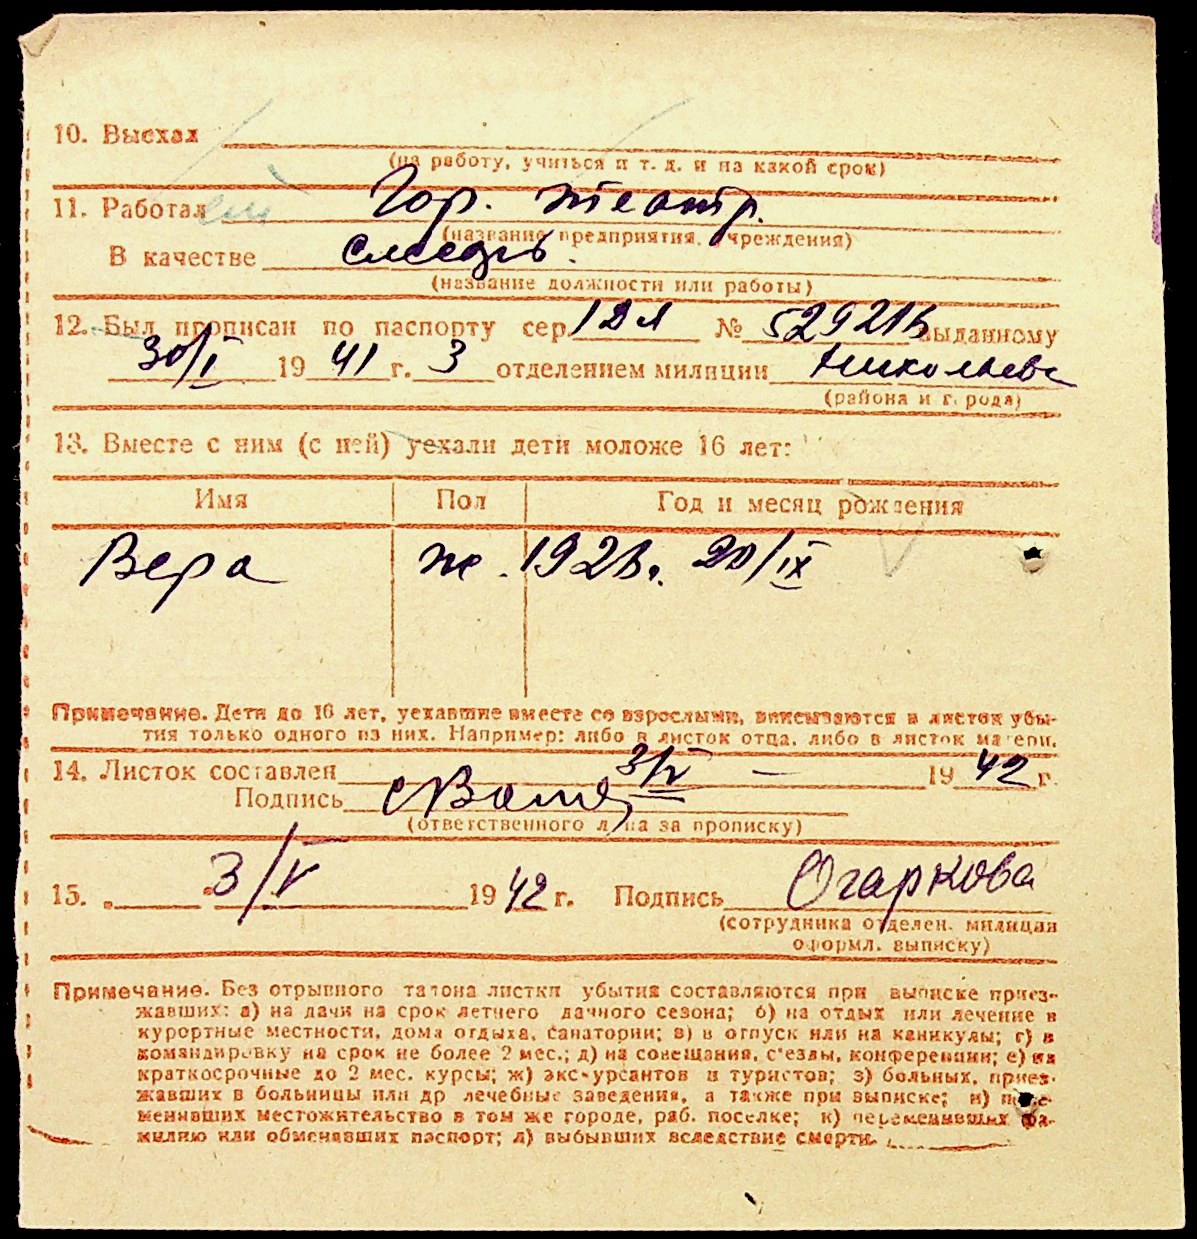 10. Выехал
(на работу, учиться и т. д. и на какой срок)
11. Работал Гор. театр.
(название предприятия, учреждения)
В качестве
(название должности или работы)
12. Был прописан по паспорту сер. № выданному
30/I 1941 г. 3 отделением милиции Николаев
(района и города)
13. Вместе с ним (с ней) уехали дети моложе 16 лет:
Имя Пол Год и месяц рождения
Вера ж. 1928. 20/IX
Примечание. Дети до 16 лет, уехавшие вместе со взрослыми, вписываются в листок убы-
тия только одного из них. Например: либо в листок отца, либо в листок матери.
14. Листок составлен 3/V — 1942 г.
Подпись
(ответственного лица за прописку)
15. „ 3/V 1942 г. Подпись Огаркова
(сотрудника отделен. милиции
оформл. выписку)
Примечание. Без отрывного талона листки убытия составляются при выписке приез-
жавших: а) на дачи на срок летнего дачного сезона; б) на отдых или лечение в
курортные местности, дома отдыха, санатории; в) в отпуск или на каникулы; г) в
командировку на срок не более 2 мес.; д) на совещания, с'езды, конференции; е) на
краткосрочные до 2 мес. курсы; ж) экскурсантов и туристов; з) больных, приез-
жавших в больницы или др лечебные заведения, а также при выписке; и) пере-
менивших местожительство в том же городе, раб. поселке; к) переменивших фа-
милию или обменявших паспорт; л) выбывших вследствие смерти.